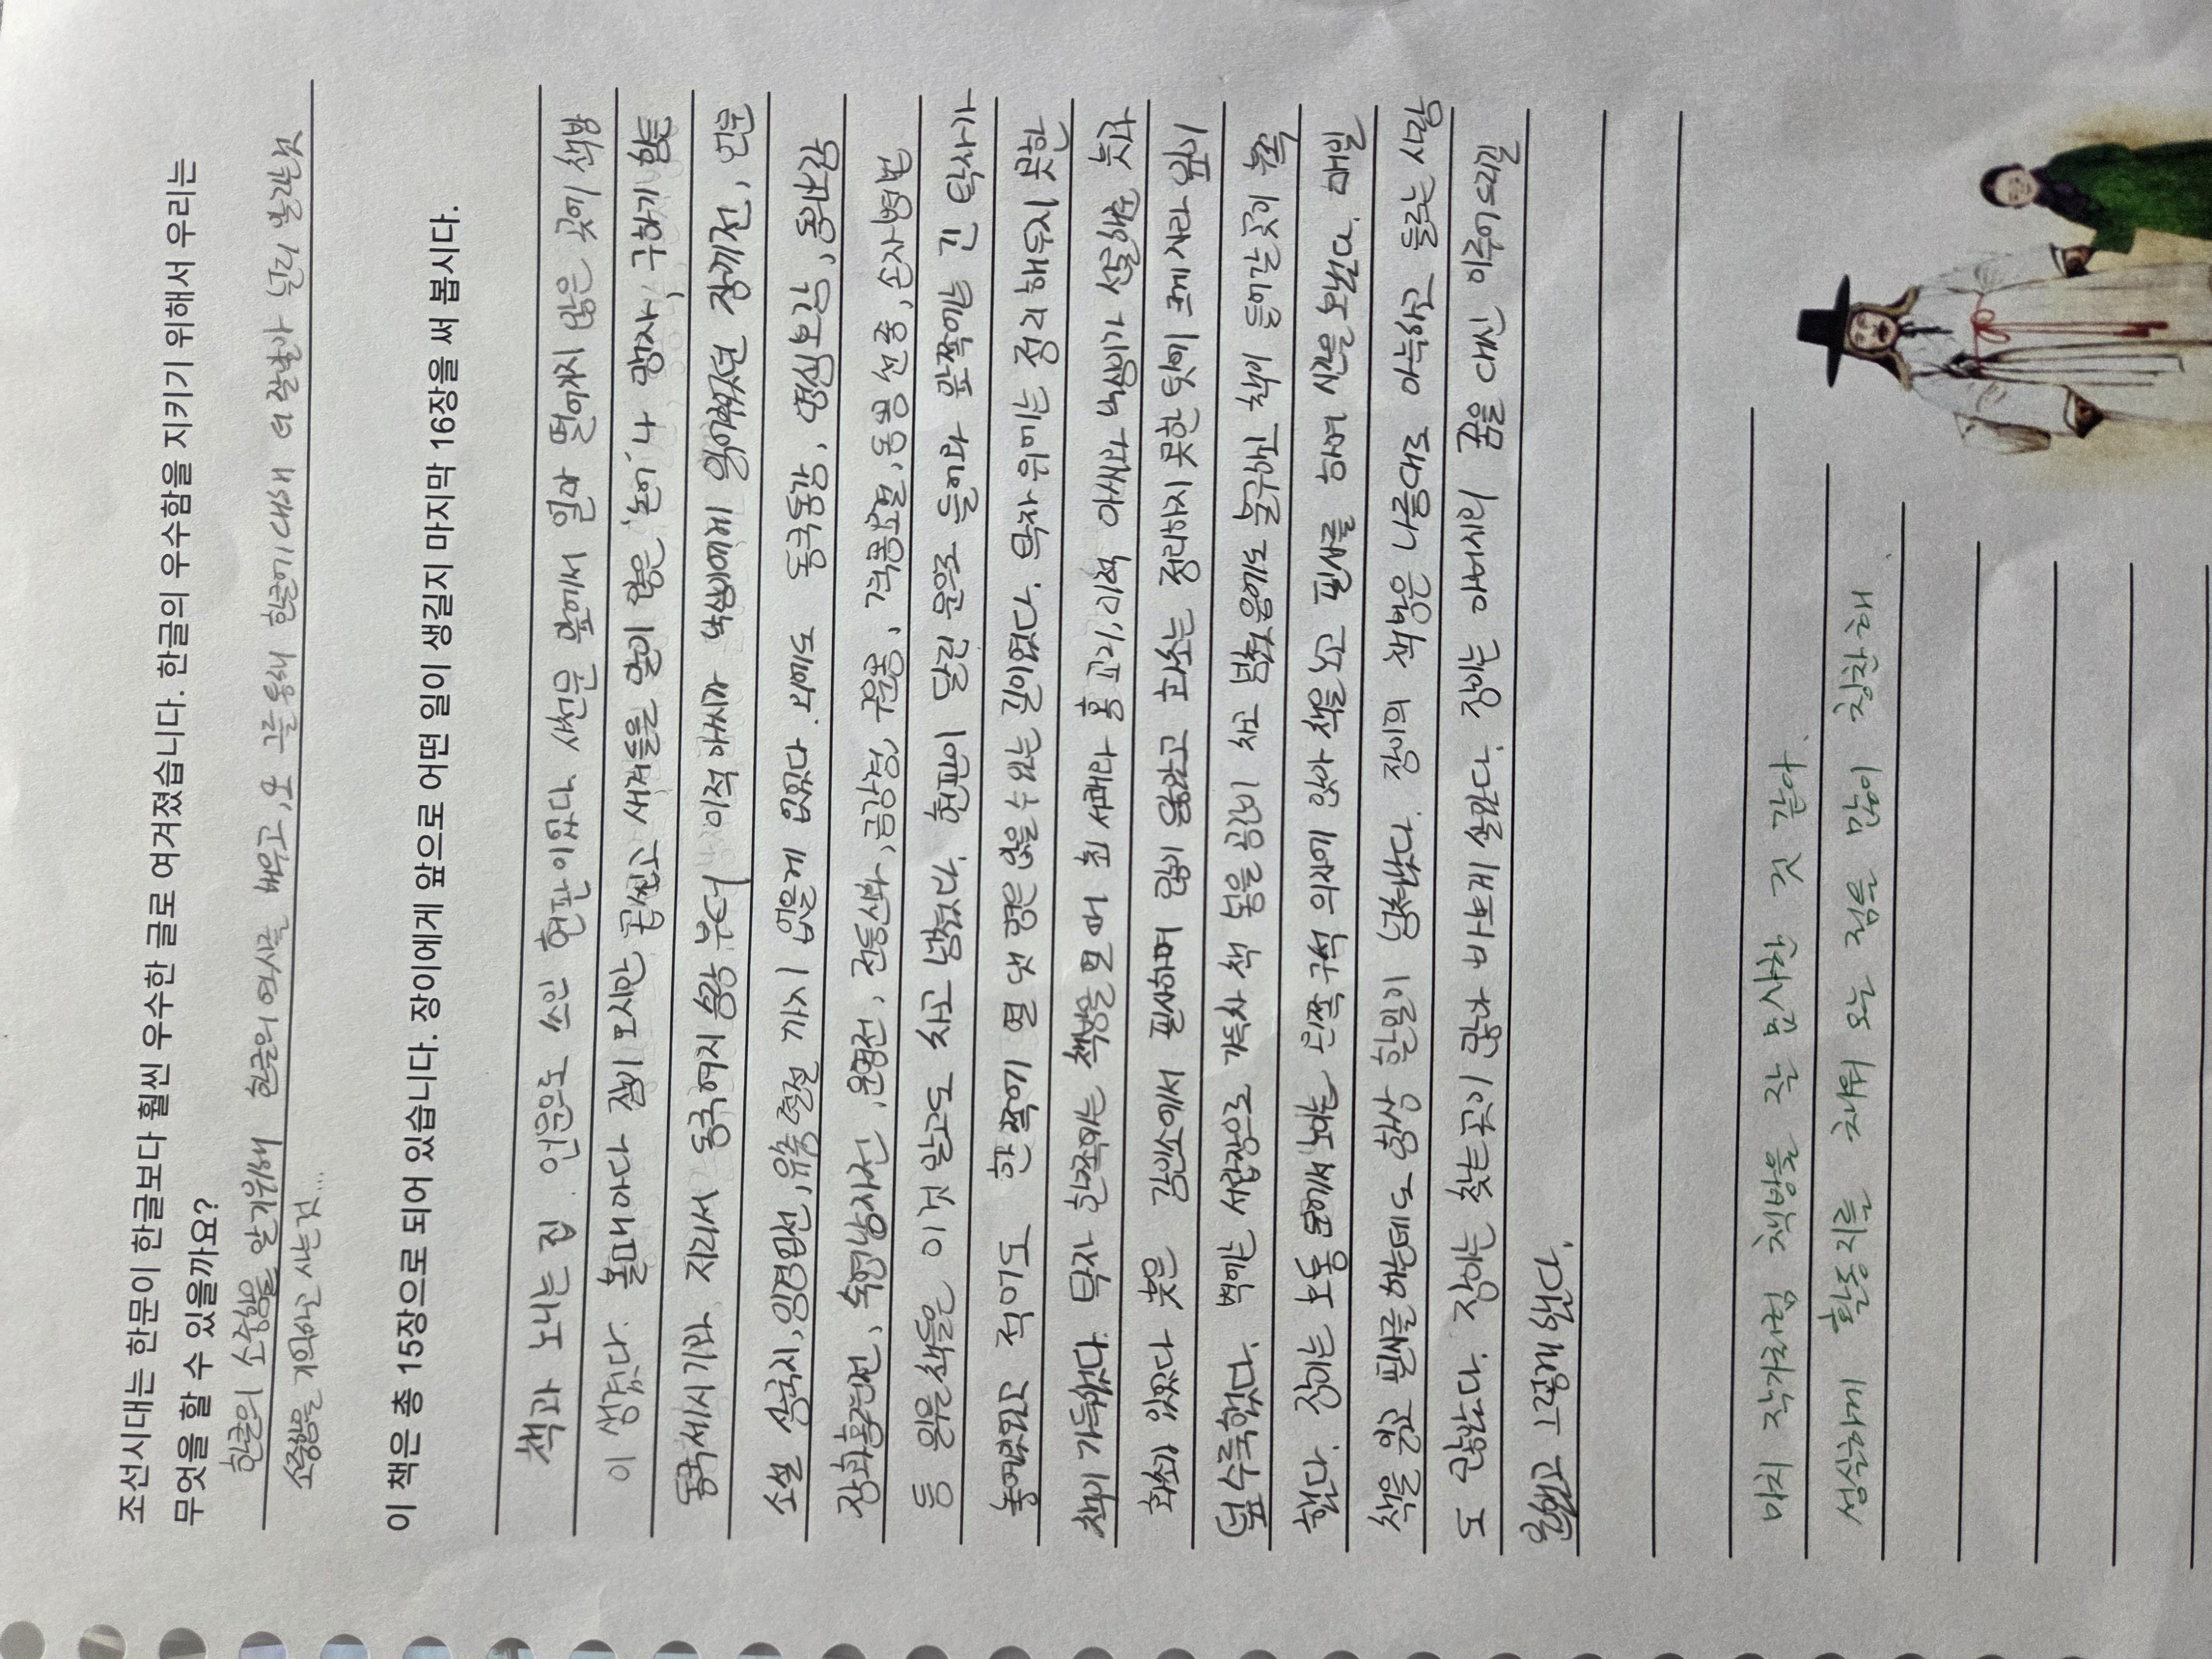 조선시대는 한문이 한글보다 훨씬 우수한 글로 여겨졌습니다. 한글의 우수함을 지키기 위해서 우리는
무엇을 할 수 있을까요?
한글의 소중함을 알기위해 한글의 역사를 배우고, 또 그를 통해 한글이 대해 더 잘 널리 알리는것
소중함을 기억하고 사는것...
이 책은 총 15장으로 되어 있습니다. 장이에게 앞으로 어떤 일이 생길지 마지막 16장을 써 봅시다.
책과 노니는 집. 언문으로 쓰인 현판이었다. 서천문 앞에서 얼마 떨어지지 않은 곳에 책방
이 생겼다. 볼때마다 잠시 모시만 곱씹고 새겨들을 말이 많은 '논어'나 '맹자', 구하기 힘든
동국세시기라. 지리서 동국여지승람 부터 이적 아씨가 낙심이에게 읽어줬던 장끼전, 언문
소설 삼국지, 임경업전, 유충렬전 까지 없을게 없었다. 그외에도 동국통감, 명심보감, 동의보감
장화홍련전, 숙영낭자전, 운영전, 전등신화, 금강경, 구운몽, 격몽요결, 동몽선습, 손자병법
등 읽을 책들은 이것 말고도 차고 넘쳤다. 현판이 달린 문으로 들어와 앞쪽에는 긴 탁자가
놓여있었고 적어도 한 쪽에 열 댓 명은 앉을 수 있는 길이였다. 탁자 위에는 정리 해두지 못한
책이 가득했다. 탁자 한쪽에는 책방을 열 때 최 서쾌와 홍 교리, 미적 아씨와 낙심이가 선물해준 난과
화초가 있었다 붓은 간소에서 필사하며 많이 닳았고 화초는 정리하지 못한 탓에 크게 자라 잎이
덮 수룩했다. 벽에는 서랍장으로 가득차 책 놓을 공간이 차고 넘쳤음에도 불구하고 책이 들어갈 곳이 부족
했다. 장이는 보통 문에서 보이는 왼쪽 구석 의자에 앉아 책을 보고 필사를 하며 시간을 보냈다. 매일
책을 읽고 필사를 하는데도 항상 할일이 넘쳐났다. 장이의 책방은 나름대로 아늑하고 들르는 사람
도 많았다. 장이는 찾는 곳이 많아 바쁘게 살았다. 장이는 아버지의 꿈을 대신 이루어드리길
원했고 그렇게 했다.
마치 작가처럼 책방을 잘 묘사한 것 같아.
성실하게 활동지를 채워 오는 점은 많이 칭찬해